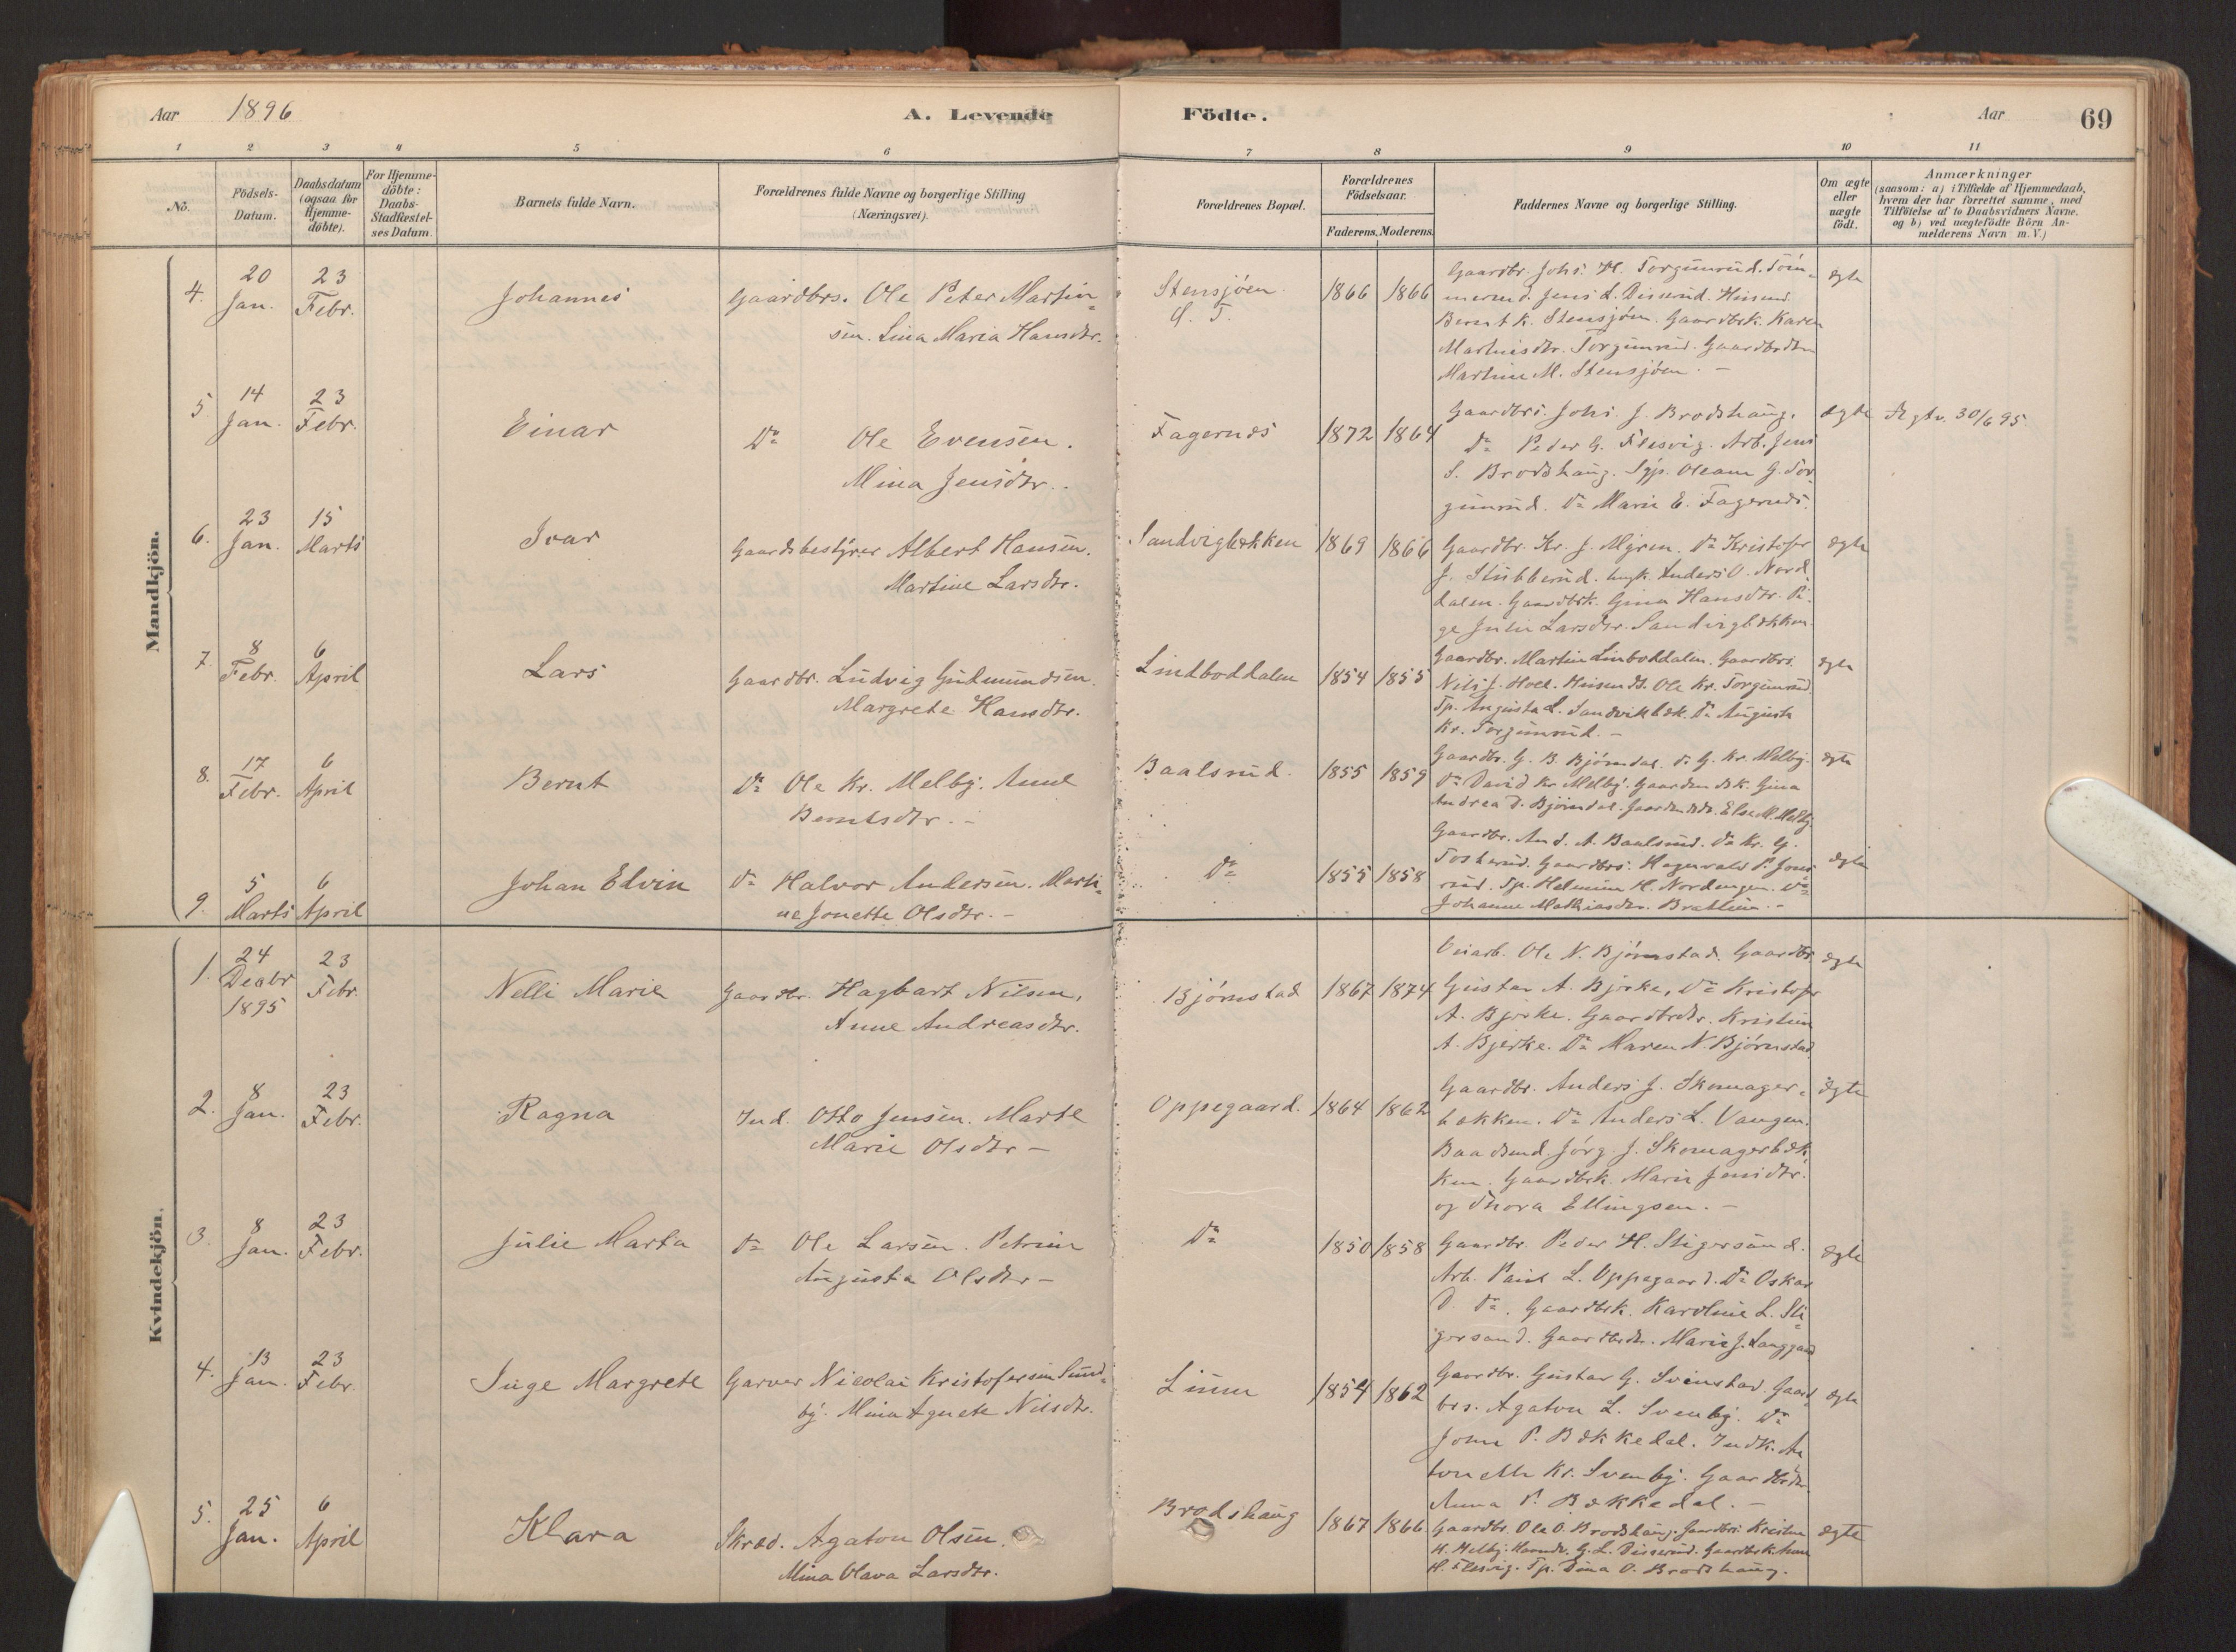 Aar 1896
A. Levende Födte.
Aar
69
1 2 3 4 5 6 7 8 9 10 11
No.
Födsels-
Datum.
Daabsdatum
(ogsaa for
Hjemme-
döbte).
For Hjemme-
döbte:
Daabs-
Stadfæstel-
ses Datum.
Barnets fulde Navn.
Forældrenes fulde Navne og borgerlige Stilling
(Næringsvei).
Forældrenes Bopæl.
Forældrenes
Födselsaar.
Faderens. Moderens.
Faddernes Navne og borgerlige Stilling.
Om ægte
eller
uægte
födt.
Anmærkninger
(saasom: a) i Tilfælde af Hjemmedaab,
hvem der har forrettet samme, med
Tilföielse af to Daabsvidners Navne.
og b) ved uægtefödte Börn An-
melderens Navn m.V.)
Mandkjön.
4. 20 Jan. 23 Febr. Johannes
Gaardbrs. Ole Peter Martin-
sen. Lina Maria Hansdtr.
Stensjøen
1866 1866
Gaardbr. Johs. H. Torgunrud. Töm-
mermd. Jens L. Diserud. Husmd.
Bernt K. Stensjøen. Gaardbrk. Karen
Martinsdtr. Torgunrud. Gaardbrdtr
Martine M. Stensjøen. -
ægte
5 14 Jan. 23 Febr. Einar
Do Ole Evensen.
Mina Jensdtr.
Fagernes
1872 1864
Gaardbrs. Johs. J. Brodshaug.
Do Peder G. Flesvig. Arb. Jens
S. Brodshaug. Tjp. Oleane G. Tor-
gunrud. Do Marie E. Fagernes.
ægte
30/6 95
6. 23 Jan. 15 Marts Ivar
Gaardsbestyrer Albert Hansen.
Martine Larsdtr.
Sandvigbækken
1869 1866
Gaardbr. Kr. J. Myren. Do Kristofer
J. Stubberud. Ungk. Anders O. Nord-
dalen. Gaardbrk. Gina Hansdtr. Pi-
ge Julie Larsdtr. Sandvigbækken
ægte
7. 8 Febr. 6 April Lars
Gaardbr. Ludvig Gudmundsen.
Margrete Hansdtr.
Lindboddalen
1854 1855
Gaardbr. Martin Linboddalen. Gaardbrs.
Nils J. Hoel. Husmds. Ole Kr. Torgunrud.
Tp. Augusta L. Sandvikbæk. Do Augusta
Kr. Torgunrud. -
ægte
8. 17 Febr. 6 April Bernt
Do Ole Kr. Melby. Anne
Berntsdtr. -
Baalsrud.
1855 1859
Gaardbr. G. B. Bjørndal. Do G. Kr. Melby.
Do David Kr. Melby. Gaardmdsk. Gina
Andrea D. Bjørndal. Else M. Melby.
ægte
9. 5 Marts 6 April Johan Edvin
Do Halvor Andersen. Marti-
ne Jonette Olsdtr. -
Do
1855 1858
Gaardbr. And. A. Baalsrud. Do Kr. G.
Tosterud. Gaardbrs. Hagenvald P. Jons-
rud. Tp. Helmine H. Nordengen. Do
Johanne Mathiasdtr. Brattlien. -
ægte
Kvindekjön.
1. 24 Decbr 1895 23 Febr. Nelli Marie
Gaardbr. Hagbart Nilsen,
Anne Andreasdtr.
Bjørnstad
1867 1874
Veiarb. Ole N. Bjørnstad. Gaardbr
Gustav A. Bjerke, Do Kristofer
A. Bjerke. Gaardbrdtr. Kristine
A. Bjerke. Do Maren N. Bjørnstad
ægte
2. 8 Jan. 23 Febr. Ragna
Ind. Otto Jensen. Marte
Marie Olsdtr -
Oppegaard.
1864 1862
Gaardbr. Anders J. Skomager-
bakken. Do Anders L. Vangen.
Baadsmd. Jörg. J. Skomagerbæk-
ken. Gaardbrk. Marie Jensdtr.
og Thora Ellingsen. -
ægte
3. 8 Jan. 23 Febr. Julie Marta
Do Ole Larsen. Petrine
Augusta Olsdtr -
Do
1850 1858
Gaardbr. Peder H. Stigersand.
Arb. Paul L. Oppegaard. Do Oskar
O. Do. Gaardbrk. Karoline L. Sti-
gersand. Gaardbrdtr. Marie J. Langgaard
ægte
4. 13 Jan. 23 Febr. Inge Margrete
Garver Nicolai Kristofersen Sund-
by. Mina Agnete Nilsdtr.
Linna
1854 1862
Gaardbr. Gustav G. Svenstad. Gaard-
brs. Agaton L. Svenby. Do
John P. Bækkedal. Indk. An-
tonette Kr. Svenby. Gaardbrdtr.
Anna P. Bækkedal. -
ægte
5. 25 Jan. 6 April Klara
Skræd. Agaton Olsen.
Mina Olava Larsdtr.
Brodshaug
1867 1866
Gaardbr. Ole O. Brodshaug. Gaardbrs. Kristian
H. Melby. G. L. Disserud. Gaardbrk. Anne
H. Flesvig. Tp. Dina O. Brodshaug.
ægte